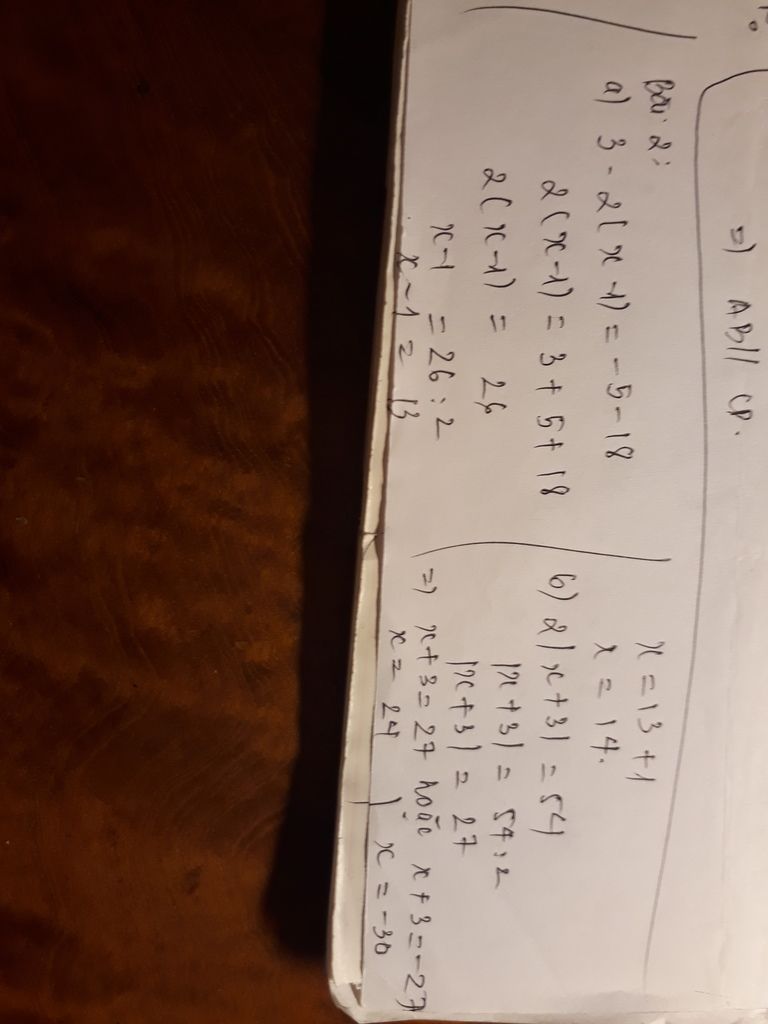 =) AB// CP.
Bài 2:
a) 3 - 2(x-1) = -5-18
2(x-1) = 3+5+18
2(x-1) = 26
x-1 = 26:2
x-1 = 13
x = 13+1
x = 14.
b) 2|x+3| = 54
|x+3| = 54:2
|x+3| = 27
=) x+3 = 27 hoặc x+3 = -27
x = 24 ) x = -30